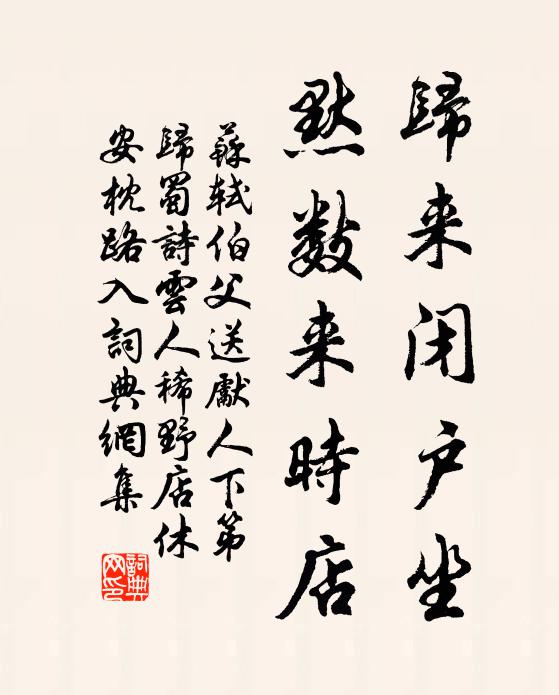 歸来闭户坐
默数来時店
蘇轼伯父送獻人下第
歸蜀詩雲人稀野店休
安枕路入詞典網集
詞典
网印